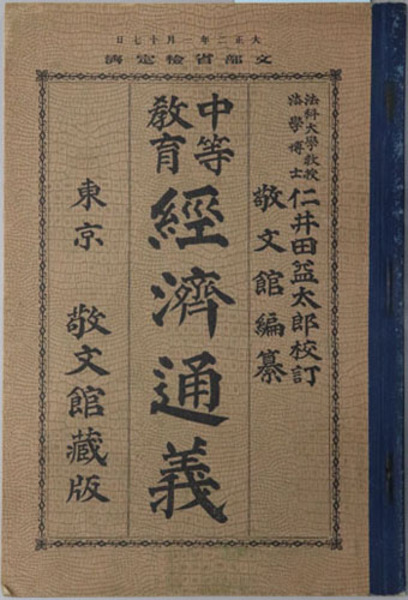 大正二年一月十七日
文部省検定済
法科大學教授
法學博士
仁井田益太郎校訂
敬文館編纂
中等
教育
經濟通義
東京 敬文館藏版